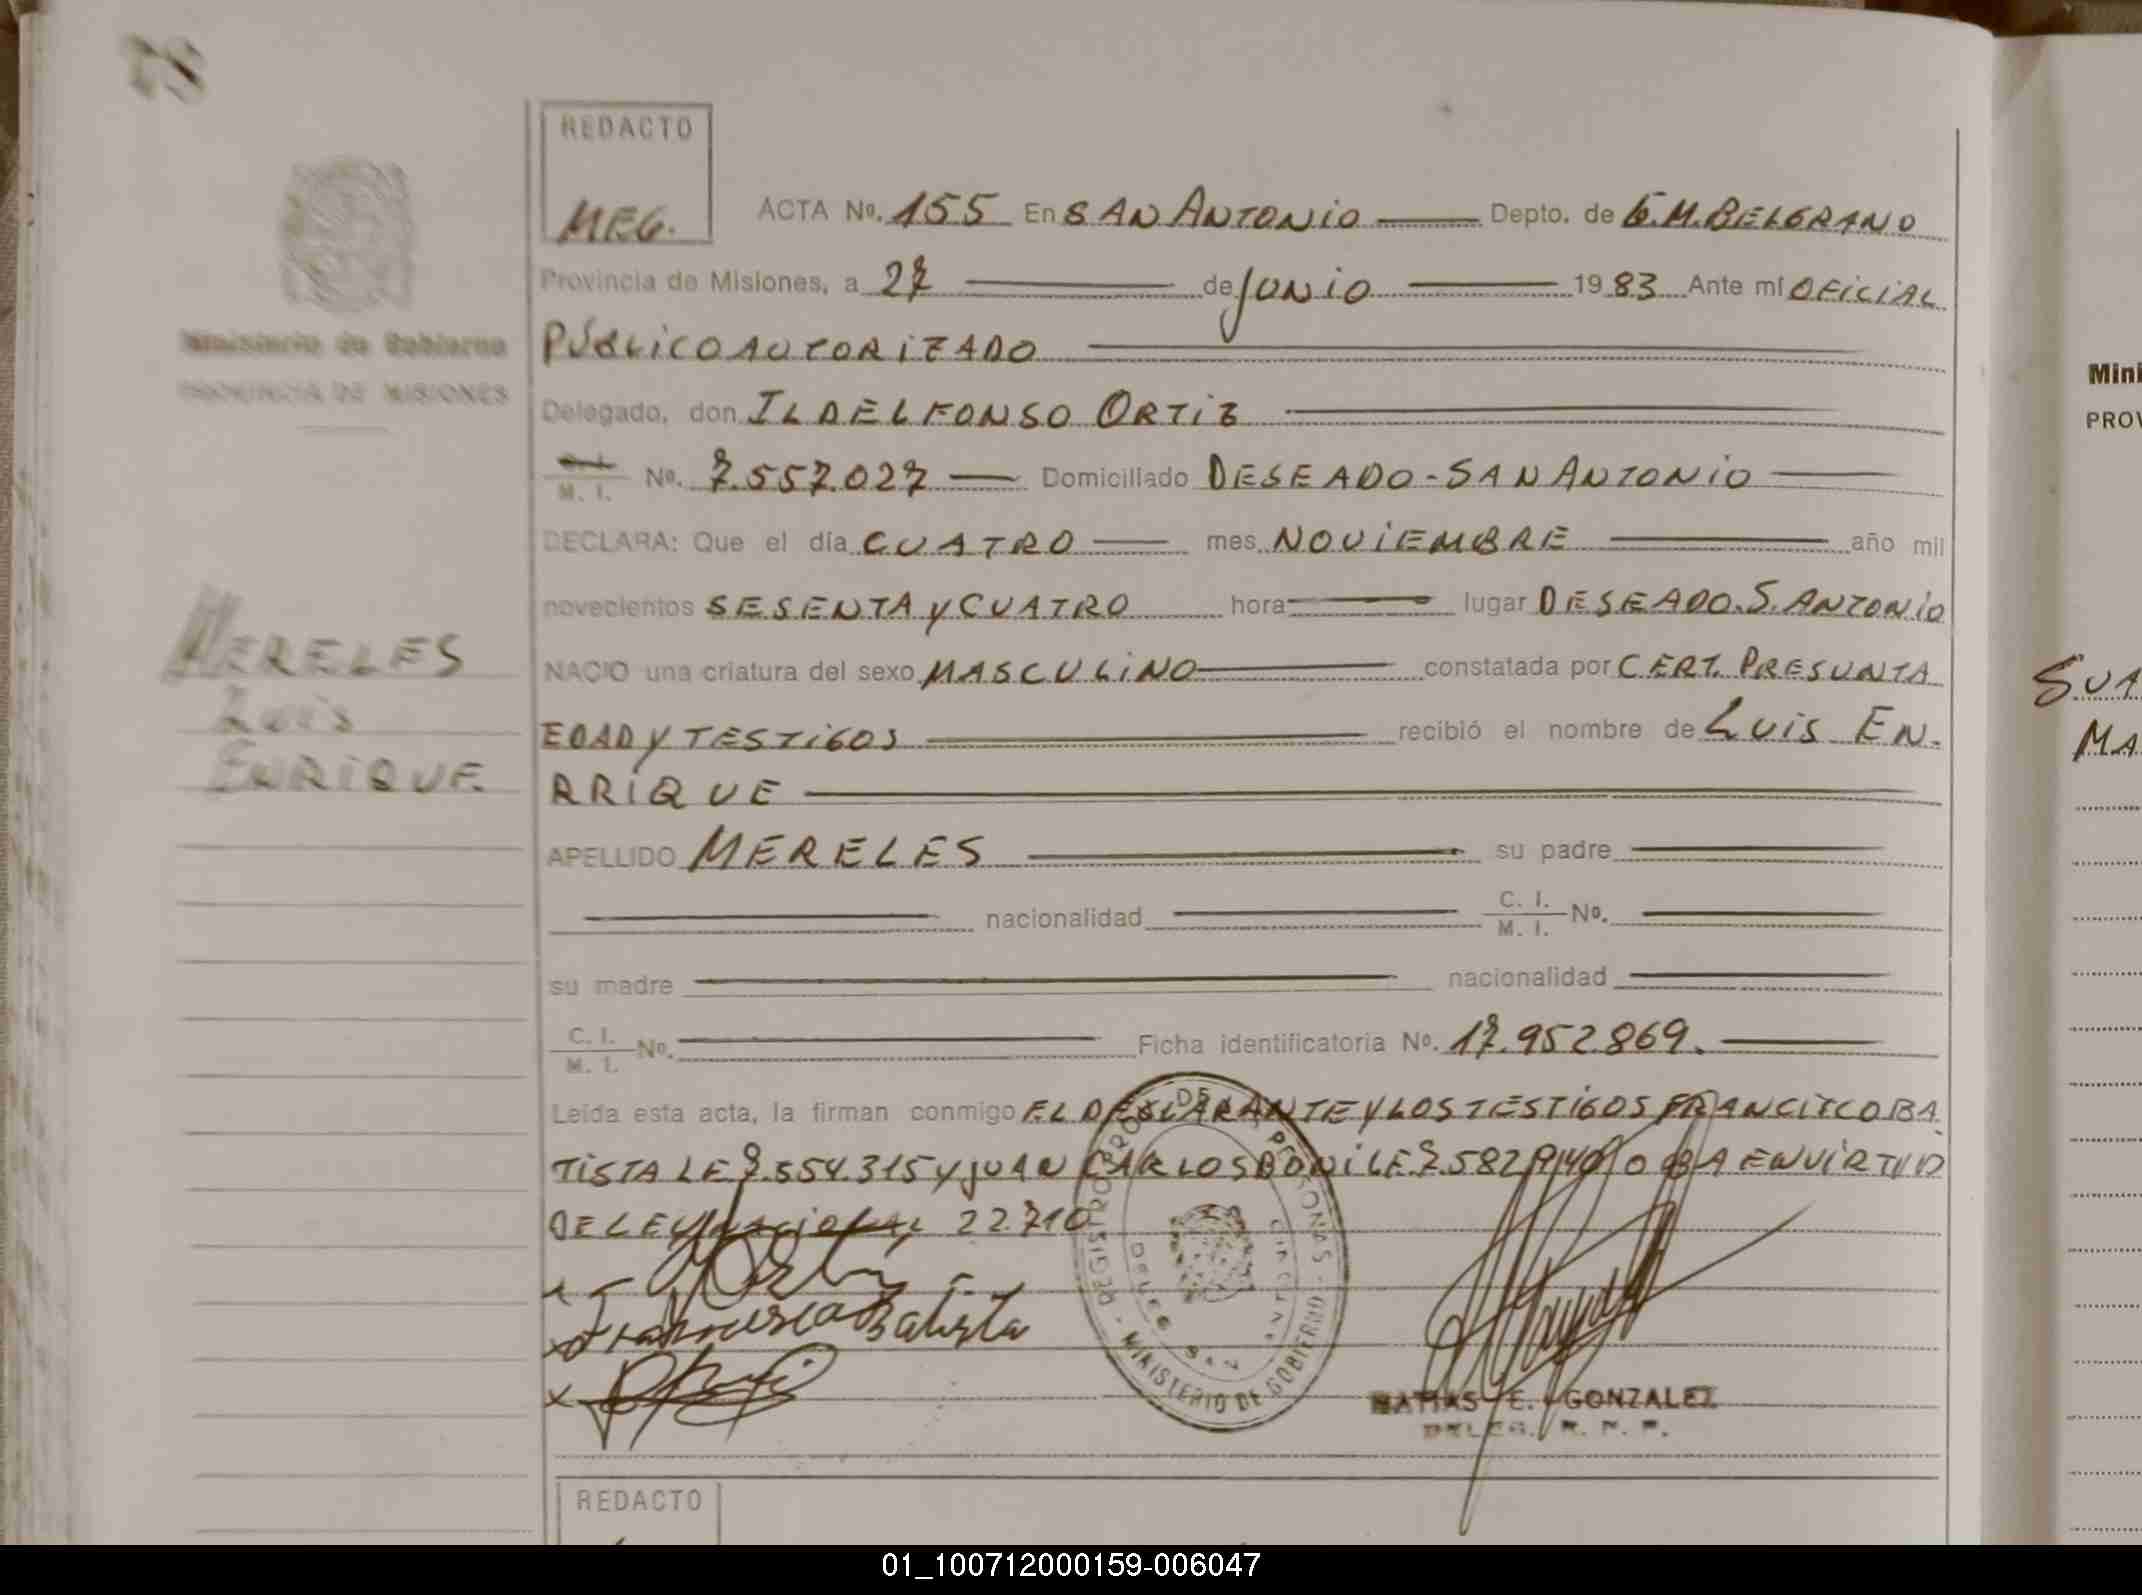 78
REDACTO
MEG.
Ministerio de Gobierno
PROVINCIA DE MISIONES
ACTA No. 155 En SAN ANTONIO Depto. de G.M. BELGRANO
Provincia de Misiones, a 27 de JUNIO 1983 Ante mí OFICIAL
PÚBLICO AUTORIZADO
Delegado, don ILDELFONSO ORTIZ
M. I. No. 7.557.027 Domiciliado DESEADO-SAN ANTONIO
DECLARA: Que el día CUATRO mes NOVIEMBRE año mil
novecientos SESENTA Y CUATRO hora lugar DESEADO. S. ANTONIO
NACIO una criatura del sexo MASCULINO constatada por CERT. PRESUNTA
EDAD Y TESTIGOS recibió el nombre de LUIS EN-
RRIQUE
APELLIDO MERELES su padre
nacionalidad C. I. M. I. No.
su madre nacionalidad
C. I. M. I. No. Ficha identificatoria No. 17.952.869.
Leída esta acta, la firman conmigo EL DECLARANTE Y LOS TESTIGOS FRANCISCO BA
TISTA LE 7.554.315 Y JUAN CARLOS BONI LE 7.582 ENVIRTUD
DE LEY NACIONAL 22.710
Francisco Batista
MERELES
LUIS
ENRIQUE
REGISTRO PROV. DE LAS PERSONAS - MINISTERIO DE GOBIERNO -
DELEG. SAN ANTONIO
MATIAS E. GONZALEZ
DELEG. R. P. P.
REDACTO
Mini
PROV
SUA
MA
01_100712000159-006047